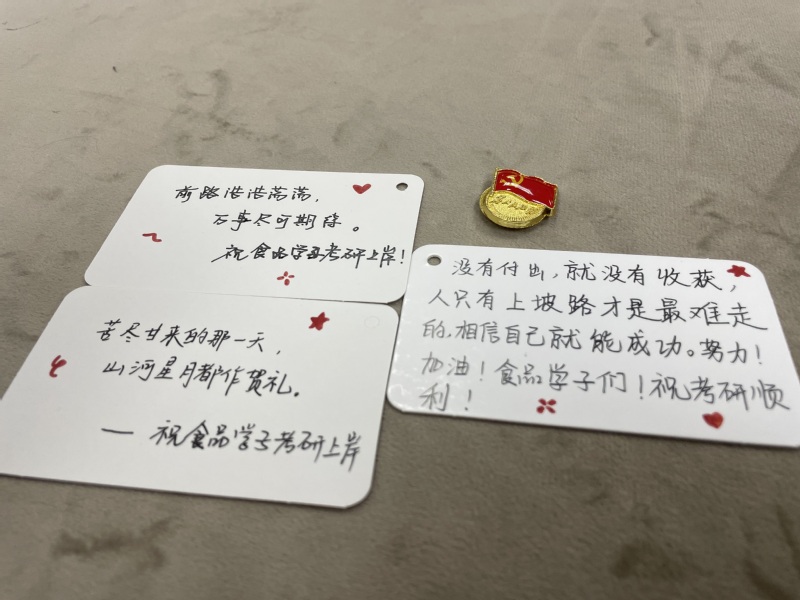 前路浩浩荡荡，
万事尽可期待。
祝食品学子考研上岸！
苦尽甘来的那一天，
山河星月都作贺礼。
— 祝食品学子考研上岸
没有付出，就没有收获，
人只有上坡路才是最难走
的。相信自己就能成功。努力！
加油！食品学子们！祝考研顺
利！
为人民服务